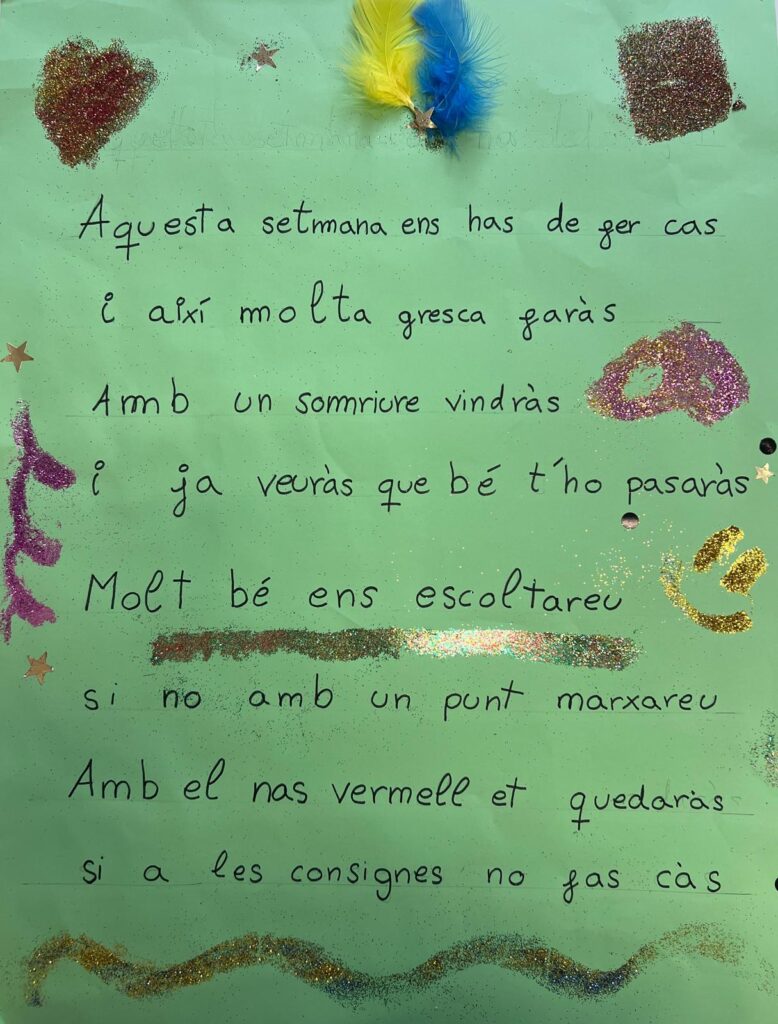 Aquesta setmana ens has de fer cas
i així molta gresca faràs
Amb un somriure vindràs
i ja veuràs que bé t'ho pasaràs
Molt bé ens escoltareu
si no amb un punt marxareu
Amb el nas vermell et quedaràs
si a les consignes no fas càs